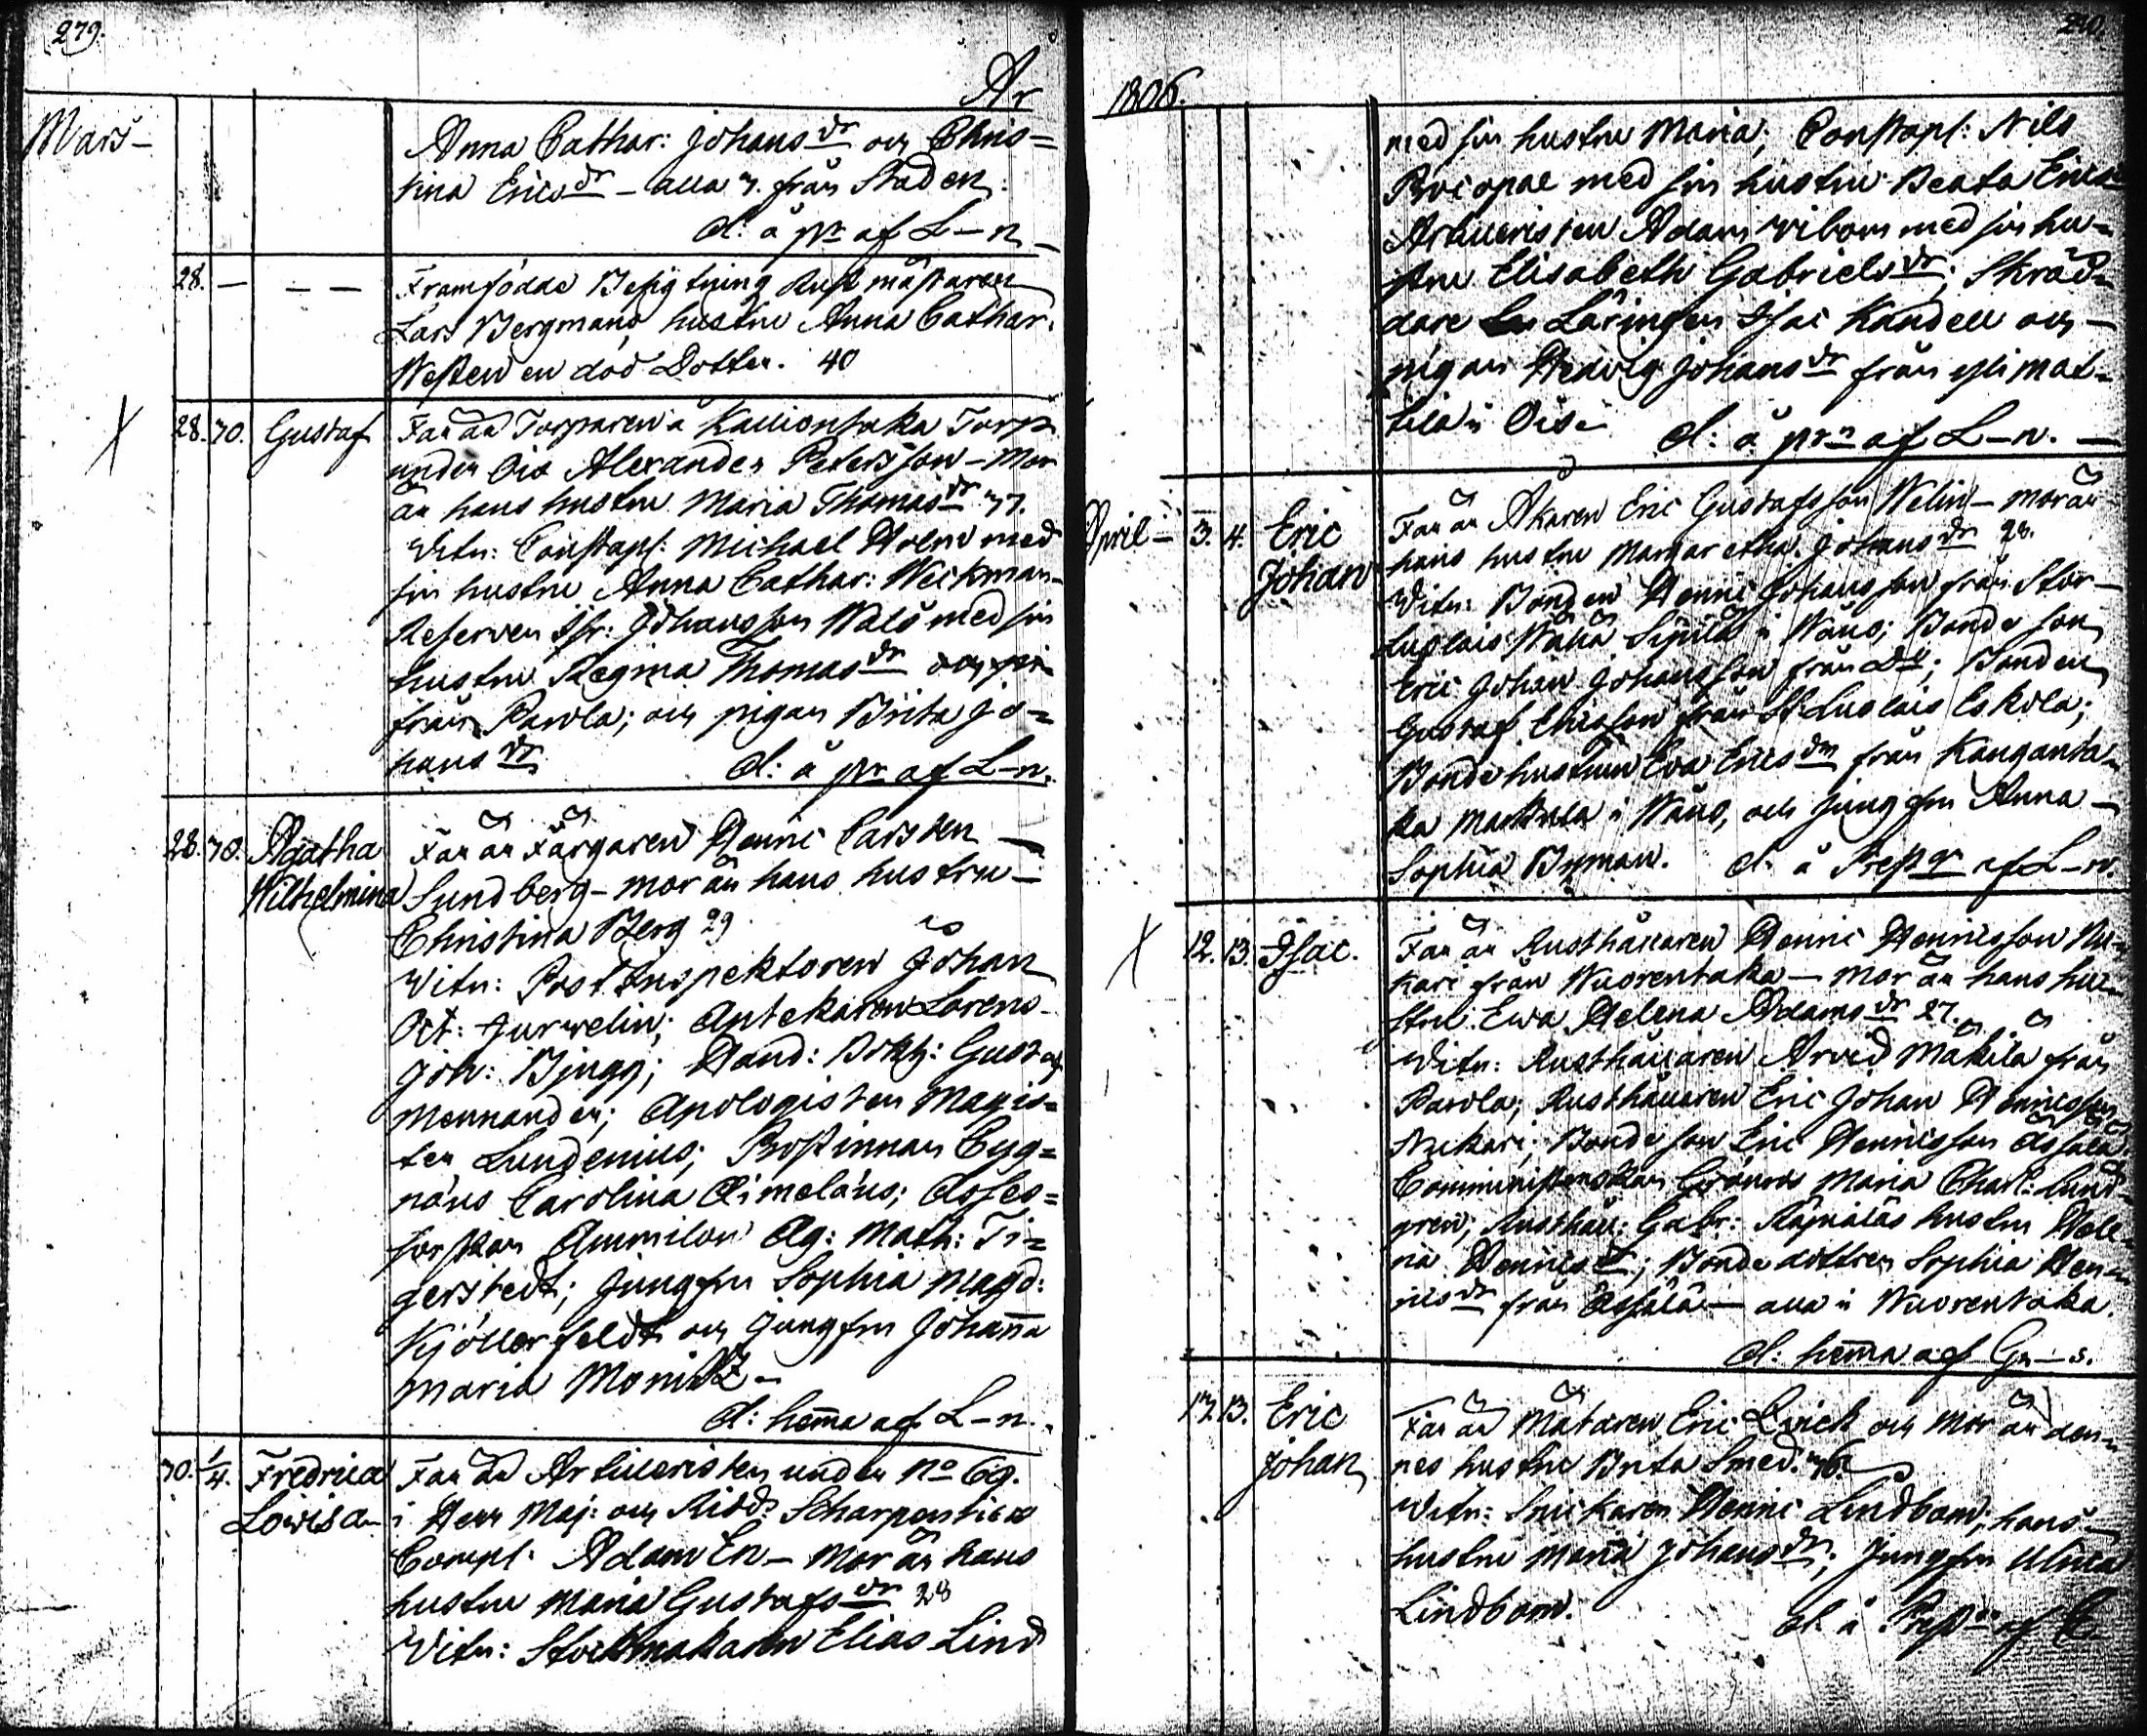 279.
År
Mars –
Anna Cathar: Johansdr och Chris=
tina Ericsdr – alla 3. från Staden:
d: å pr af L–n –
28. – – – Framfödde Besigtning Rustmästaren
Lars Bergmans hustru Anna Cathar:
Westen en död Dotter. 40
X 28. 30. Gustaf Far är Torparen å Kalliontaka Torp
under Ois Alexander Petersson – Mor
är hans hustru Maria Thomasdr 37.
Vitn: Constapl: Michael Holm med
sin hustru Anna Cathar: Weckman –
Reserven Isr: Johansson Wals med sin
hustru Regina Thomasdr
från Parola; och pigan Brita Jo=
hansdr d: å pr af L–n.
28. 30. Agatha Far är Färgaren Henric Carsten –
Wilhelmina Sundberg – mor är hans hustru –
Christina Berg 29
Vitn: Post Inspektoren Johan
Oct: Aurvelin; Apotekaren Lorens
Joh: Bjugg; Hand: Bokh: Gustaf
Mennander; Apologisten Magis=
ter Lundenius; Prostinnan Cyg=
näus Carolina Aimelæus; Asses=
sorskan Ammilon Ag: Math: Ti=
gerstedt; Jungfru Sophia Magd:
Kjöllerfeldt och Jungfru Johanna
Maria Momitz –
d: hemma af L–n.
30. 1/4. Fredrica Far är Artilleristen under No 69.
Lovisa – i Herr Maj: och Ridd: Scharpentiers
Compl: Adam En – Mor är hans
hustru Maria Gustafsdr 28
Vitn: Stockmakaren Elias Lind
1806.
280.
med sin hustru Maria; Constapl: Nils
med sin hustru Beata Ericsd
Artilleristen Adam Vibom med sin hu=
stru Elisabeth Gabrielsdr; Skräd=
dare Läringen Isac Kandell och –
pigan Hedvig Johansdr från
tila i Ois – d: å prn af L–n. –
April – 3. 4. Eric Far är Åkaren Eric Gustafsson Welin – mor är
Johan hans hustru Margaretha Johansdr 28.
Vitn: Bonden Henric Johansson från Stor –
Luolais Näha Sipilä i Wånå; Bonde son
Eric Johan Johansson från Do; Bonden
Gustaf Ericsson från St: Luolais Eskola;
Bonde hustrun Eva Ericsdr från Kanganta=
ka Markula i Wånå, och Jungfru Anna –
Sophia Byman. d: å Prestgr af L–n.
X 12. 13. Isac. Far är Rusthållaren Henric Henricsson Nu=
kari från Wuorentaka – Mor är hans hu=
stru Ewa Helena Adamsdr 27.
Vitn: Rusthållaren Arvid Mäkilä från
Parola; Rusthållaren Eric Johan Henricsson
Nukari; Bonde son Eric Henricsson Ässälä;
Comministerskan Grönros Maria Charl: Lund=
gren; Rusthåll: Gabr: hustru Hele=
na Henricsdr; Bonde dottren Sophia Hen=
ricsdr från Ässälä – alla i Wuorentaka.
d: hemma af Gr–s.
12. 13. Eric Far är Mätaren Eric Qvick och Mor är den=
Johan nes hustru Brita Smed. 36.
Vitn: Snickaren Henric Lindbom, hans –
hustru Maria Johansdr; Jungfru Ulrica
Lindbom. d: å Prestgn af